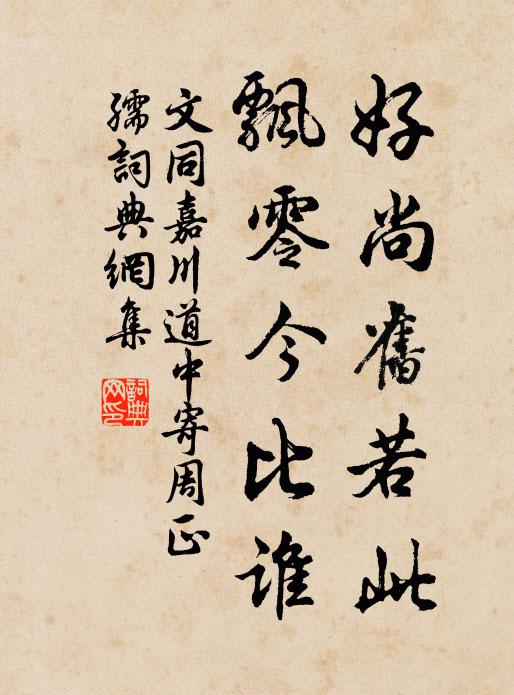 好尚舊若此
飄零今比誰
文同嘉川道中寄周正
孺詞典網集
詞典
网印